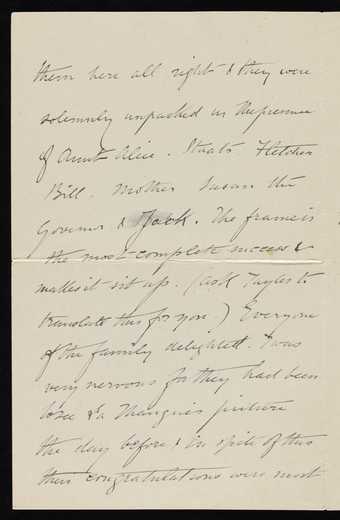 them here all right & they were
solemnly unpacked in the presence
of Aunt Alice. Staats Fletcher
Bill. Mother Susan the
Governor & Jack. The frame is
the most complete success &
makes it sit up. (Ask Taylor to
translate this for you.) Everyone
of the family delighted. I was
very nervous for they had been
to see La Thangue's picture
the day before & in spite of this
their congratulations were most